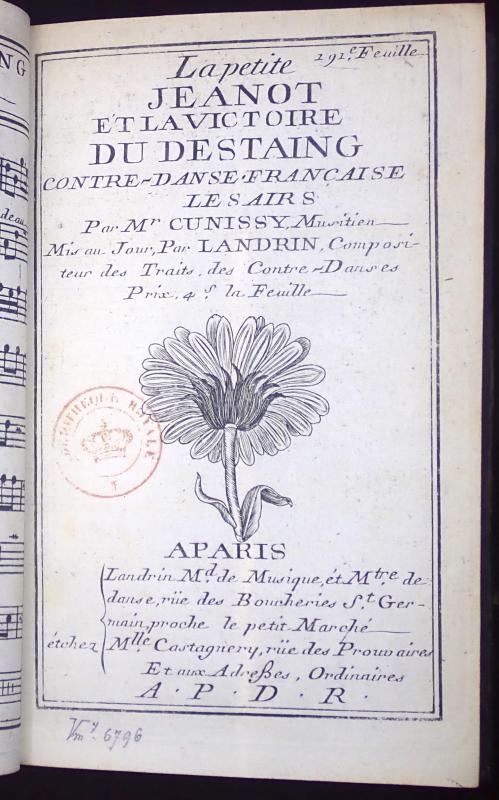 191.e Feuille
La petite
JEANOT
ET LA VICTOIRE
DU DESTAING
CONTRE-DANSE FRANÇAISE
LES AIRS
Par Mr CUNISSY, Musitien
Mis au Jour, Par LANDRIN, Composi-
teur des Traits, des Contre-Danses
Prix, 4 s. la Feuille
BIBLIOTHEQUE ROYALE
APARIS
Landrin Md. de Musique, ét Mtre de
danse, rüe des Boucheries St. Ger-
main, proche le petit Marché
étchez Mlle Castagnery, rüe des Prouvaires
Et aux Adreßes, Ordinaires
A. P. D. R.
Vm7. 6796
NG
de au